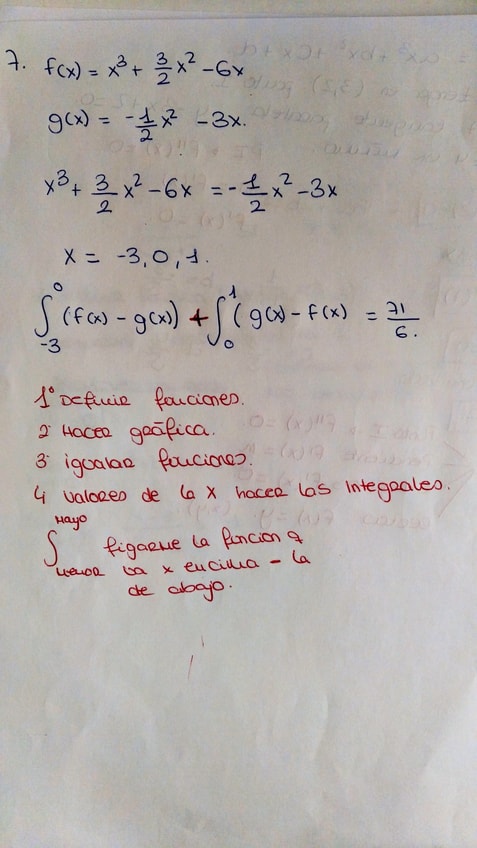 7. f(x) = x³ + 3/2 x² - 6x
g(x) = -1/2 x² - 3x.
x³ + 3/2 x² - 6x = -1/2 x² - 3x
x = -3, 0, 1.
∫₋₃⁰ (f(x) - g(x)) + ∫₀¹ (g(x) - f(x) = 71/6.
1º Definir funciones.
2 Hacer gráfica.
3 igualar funciones.
4 valores de la x hacer las integrales.
mayo
∫ figarme la funcion q
menor va x encima - la
de abajo.